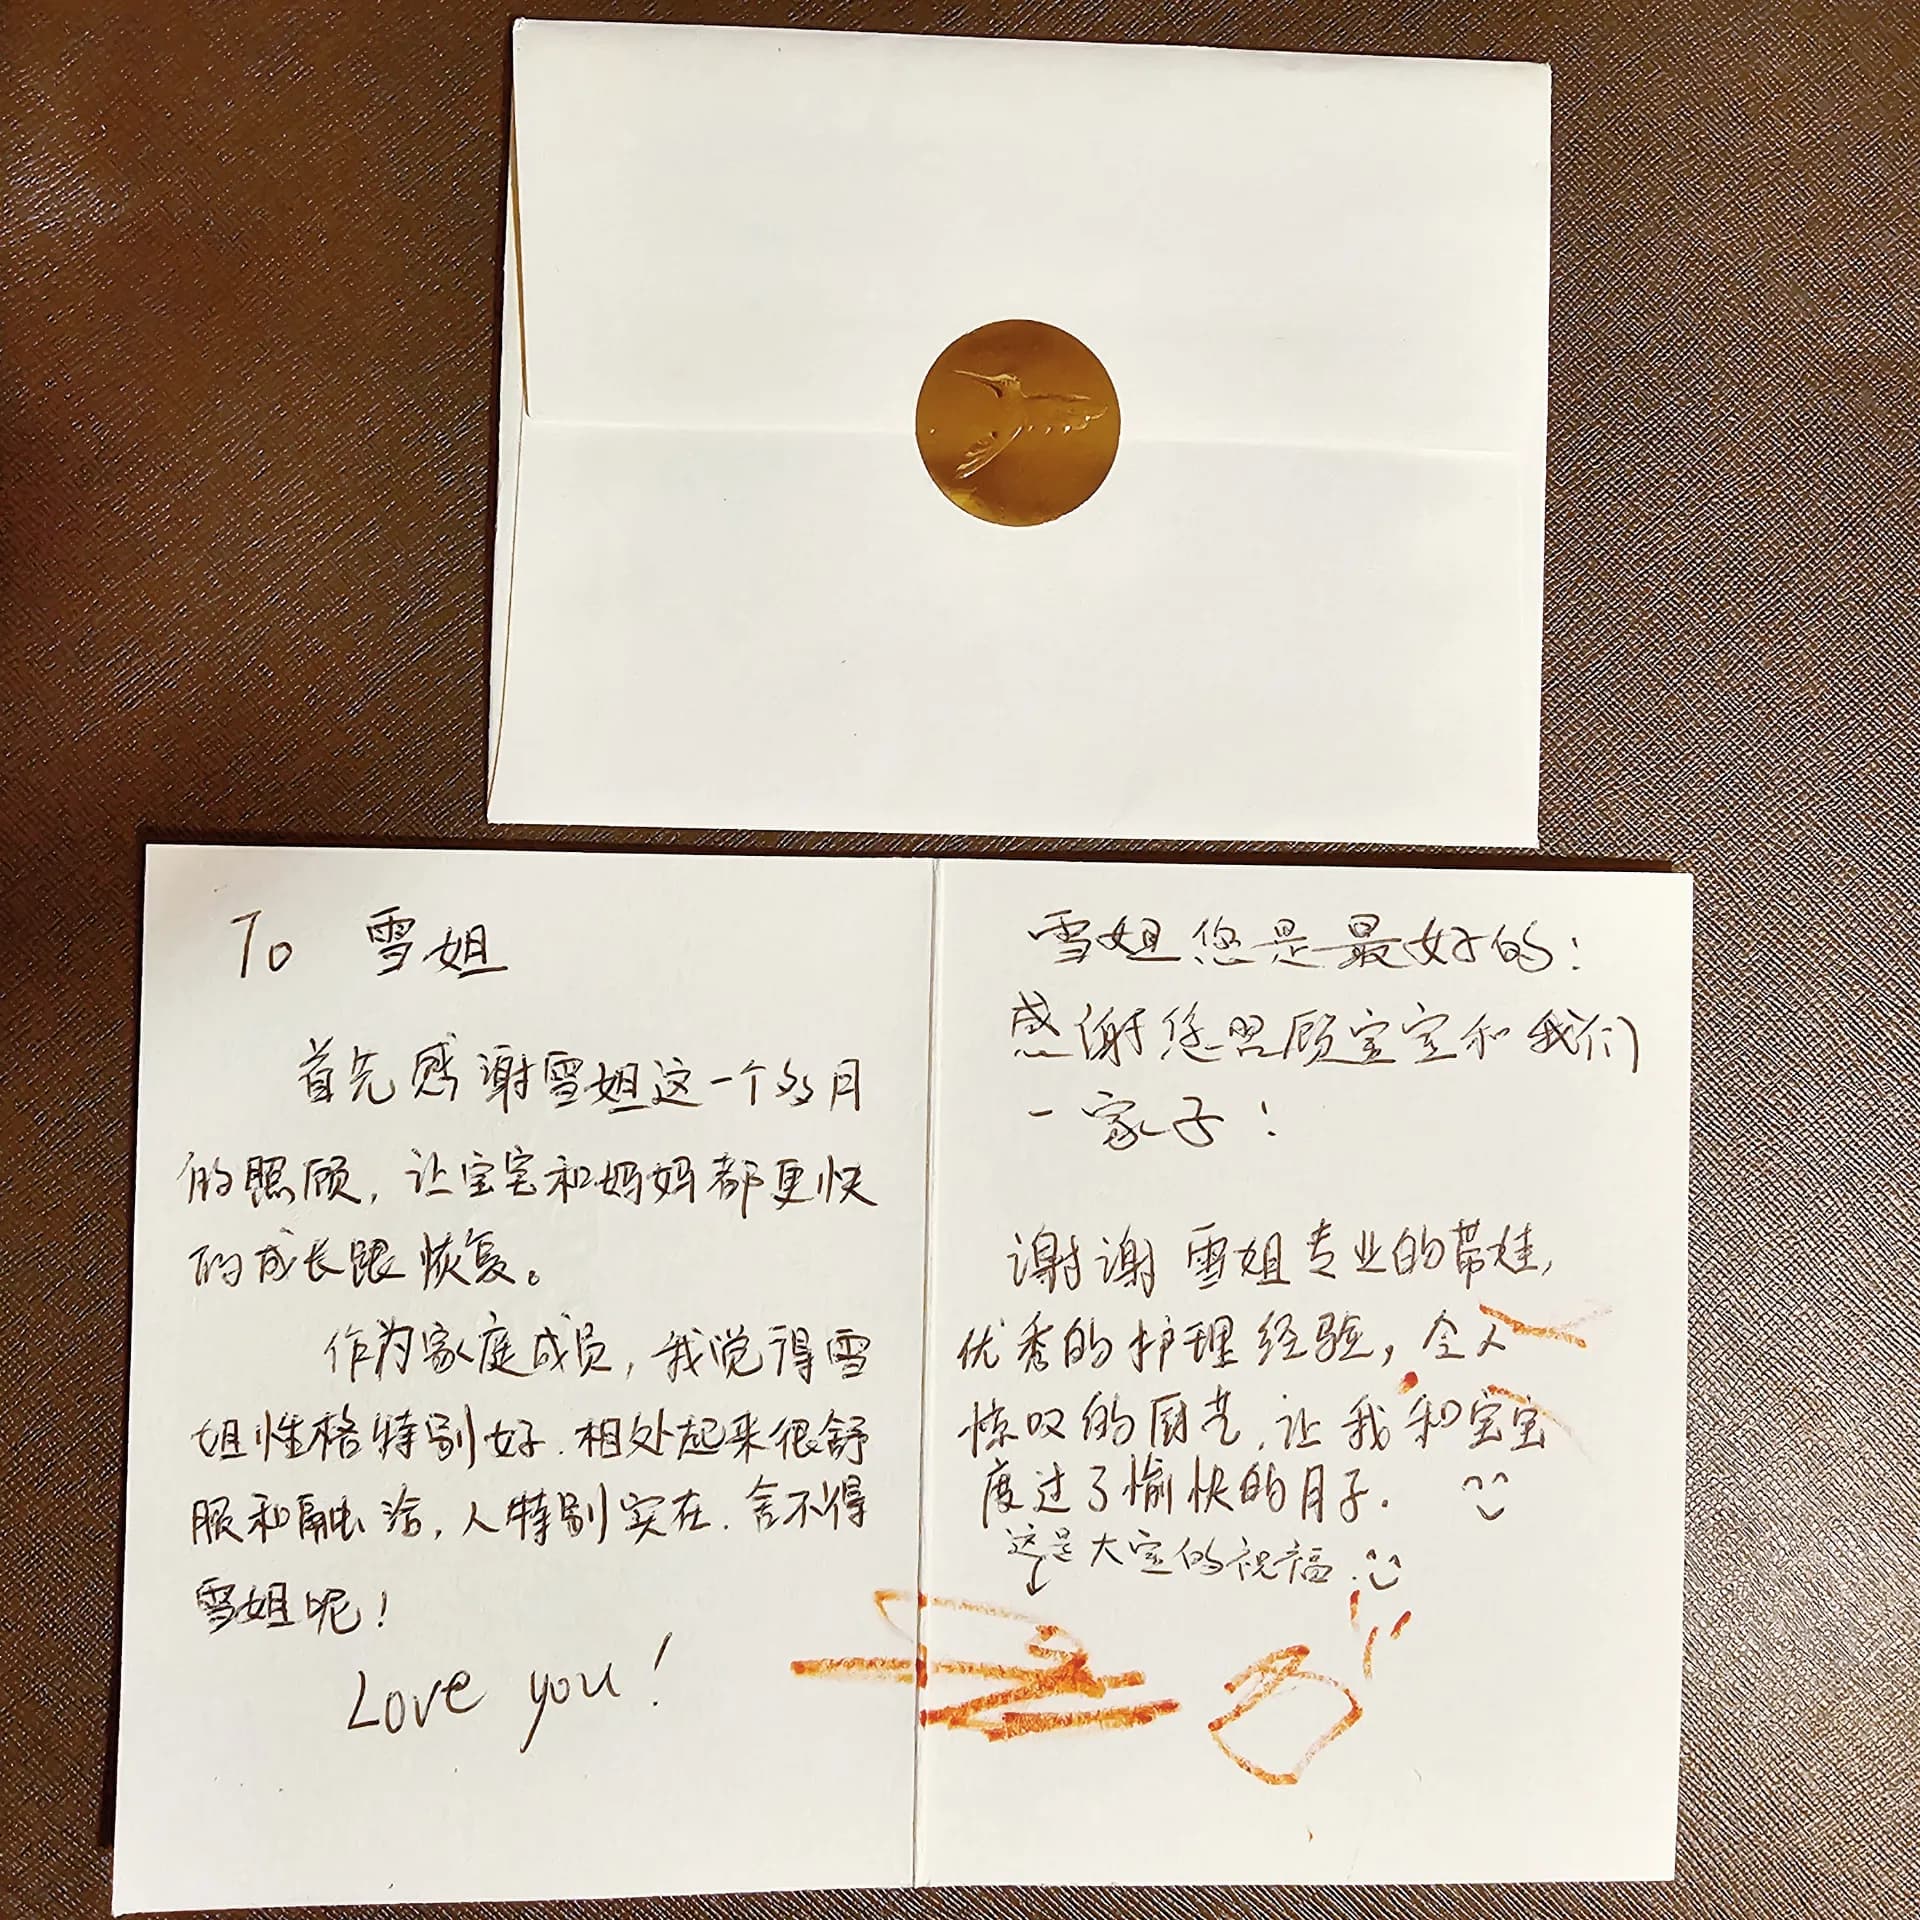 To 雪姐
首先感谢雪姐这一个多月
的照顾，让宝宝和妈妈都更快
的成长跟恢复。
作为家庭成员，我觉得雪
姐性格特别好.相处起来很舒
服和融洽，人特别实在.舍不得
雪姐呢！
Love you！
雪姐您是最好的：
感谢您照顾宝宝和我们
一家子：
谢谢雪姐专业的带娃，
优秀的护理经验，令人
惊叹的厨艺，让我和宝宝
度过了愉快的月子.
这是大宝的祝福.